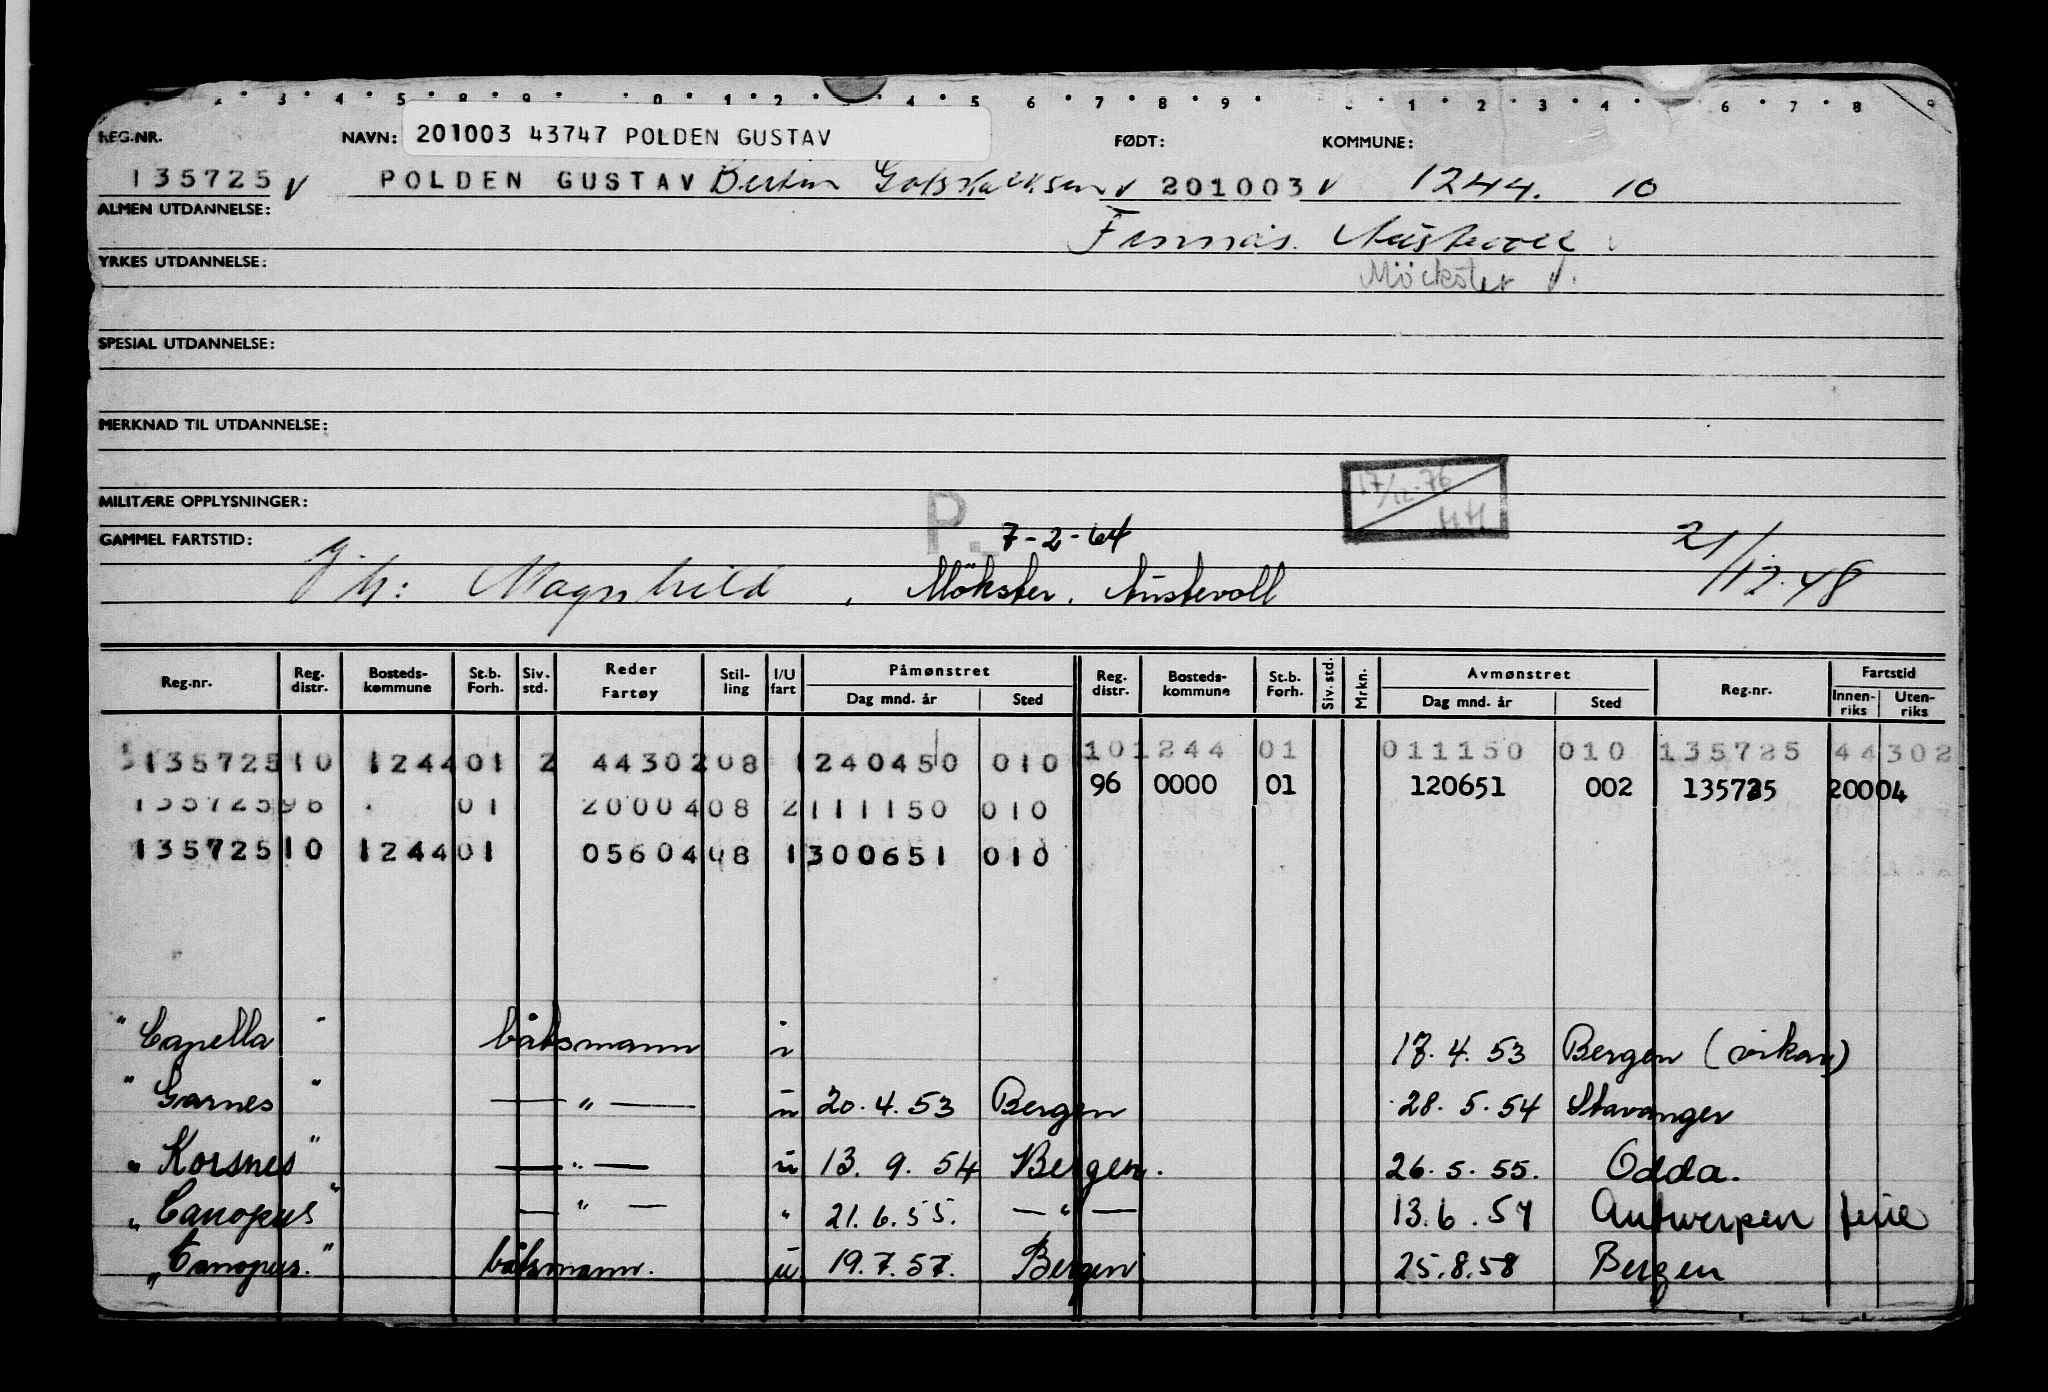 REG.NR. NAVN: 201003 43747 POLDEN GUSTAV FØDT: KOMMUNE:
135725 v POLDEN GUSTAV v 201003 v 1244. 10
ALMEN UTDANNELSE:
Austevoll
YRKES UTDANNELSE:
Möckster v.
SPESIAL UTDANNELSE:
MERKNAD TIL UTDANNELSE:
17/12.76
MILITÆRE OPPLYSNINGER: P.
GAMMEL FARTSTID: 7-2-64
21/12.48
Magnhild, Mökster, Austevoll
Reg.nr. Reg. distr. Bosteds-kommune St.b. Forh. Siv. std. Reder Fartøy Stil-ling I/U fart Påmønstret Dag mnd. år Sted Reg. distr. Bosteds-kommune St.b. Forh. Siv. std. Mrkn. Avmønstret Dag mnd. år Sted Reg.nr. Fartstid Innen-riks Uten-riks
135725 10 1244 01 2 44302 08 1 240450 010 10 1244 01 011150 010 135725 44302
135725 96 01 20004 08 2 111150 010 96 0000 01 120651 002 135725 20004
135725 10 1244 01 05604 08 1 300651 010
"Capella" båtsmann i 17.4.53 Bergen (vikar)
"Garnes" — " — u 20.4.53 Bergen 28.5.54 Stavanger
"Korsnes" — " — u 13.9.54 Bergen. 26.5.55. Odda.
"Canopus" — " — " 21.6.55. — " — 13.6.57 Antwerpen ferie
"Canopus." båtsmann. u 19.7.57. Bergen 25.8.58 Bergen